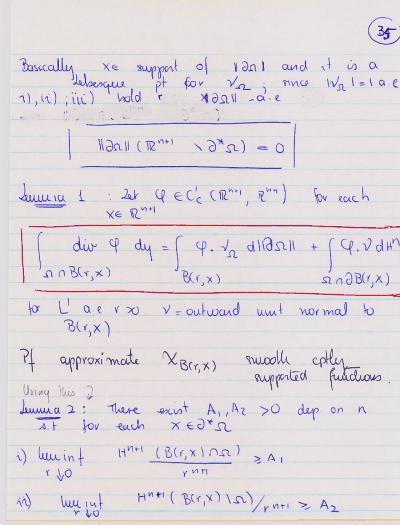 35
Basically x∈ support of ‖∂Ω‖ and it is a
Lebesgue pt for ν_Ω ; since |ν_Ω| = 1 a.e
i), ii), iii) hold ‖∂Ω‖ -a.e
‖∂Ω‖(ℝⁿ⁺¹ \ ∂*Ω) = 0
Lemma 1 : Let φ ∈ C'_c (ℝⁿ⁺¹, ℝⁿ⁺¹) for each
x∈ ℝⁿ⁺¹
∫_{Ω∩B(r,x)} div φ dy = ∫_{B(r,x)} φ.ν_Ω d‖∂Ω‖ + ∫_{Ω∩∂B(r,x)} φ.ν dHⁿ
for L' a.e r>0 ν = outward unit normal to
B(r,x)
Pf approximate χ_{B(r,x)} smooth cptly
supported functions.
Using this 2
Lemma 2 : There exist A₁, A₂ >0 dep on n
s.t for each x∈∂*Ω
i) liminf_{r↓0} Hⁿ⁺¹ (B(r,x)∩Ω) / rⁿ⁺¹ ≥ A₁
ii) liminf_{r↓0} Hⁿ⁺¹ (B(r,x)\Ω)/rⁿ⁺¹ ≥ A₂